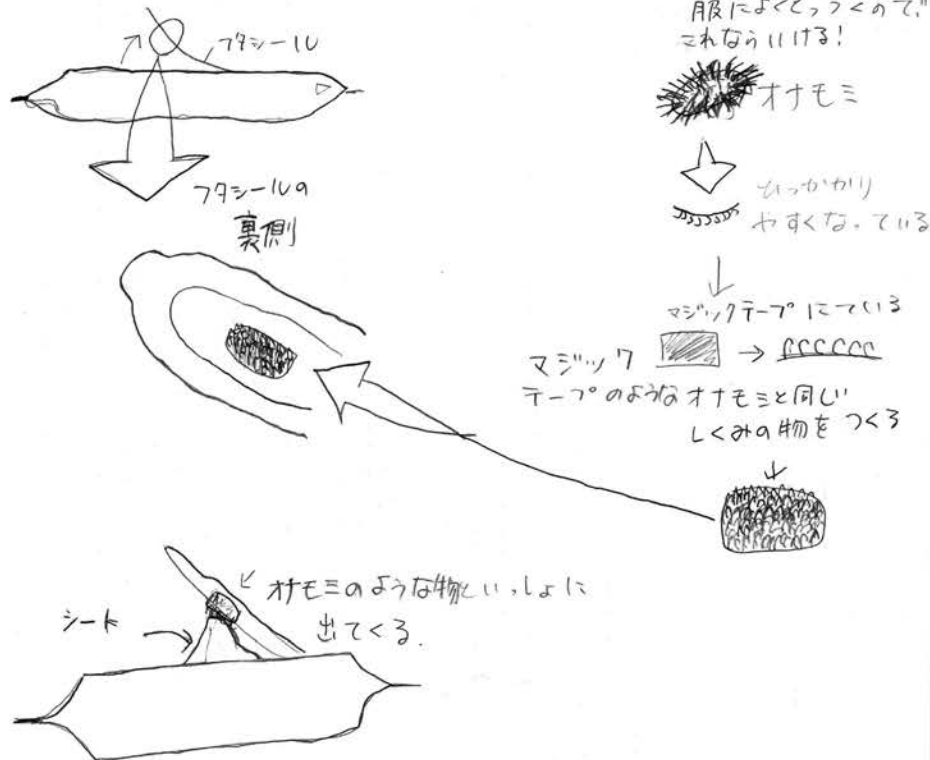 フタシール
フタシールの
裏側
服によくくっつくので、
これならいける!
オナモミ
ひっかかり
やすくなっている
マジックテープにている
マジック
テープのようなオナモミと同じ
しくみの物をつくる
オナモミのような物といっしょに
出てくる.
シート